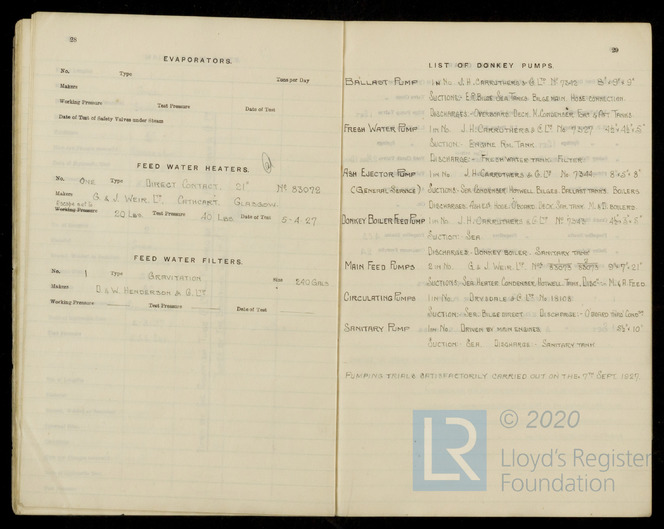 28
EVAPORATORS.
No. Type Tons per Day
Makers
Working Pressure Test Pressure Date of Test
Date of Test of Safety Valves under Steam
FEED WATER HEATERS.
No. ONE. Type DIRECT CONTACT. 21" Nº 83072
Makers G & J. WEIR. LTD. CATHCART. GLASGOW.
Working Pressure 20 LBS. Test Pressure 40 LBS Date of Test 5-4-27.
FEED WATER FILTERS.
No. 1 Type GRAVITATION Size 240 GALS
Makers D. & W. HENDERSON & Co. LTD
Working Pressure Test Pressure Date of Test
29
LIST OF DONKEY PUMPS.
BALLAST PUMP 1 in No. J. H. CARRUTHERS & Co. LTD Nº 7242 8" + 9" + 9"
SUCTIONS:- E.R. BILGE. SEA. TANKS. BILGE MAIN. HOSE CONNECTION.
DISCHARGES:- OVERBOARD. DECK. M. CONDENSER. FORE & AFT TANKS
FRESH WATER PUMP 1 in No. J. H. CARRUTHERS & Co. LTD. Nº 7327
SUCTION:- ENGINE RM. TANK
DISCHARGE:- FRESH WATER TANK. FILTER
ASH EJECTOR PUMP 1 in No. J. H. CARRUTHERS & Co. LTD. Nº 7244
(GENERAL SERVICE) SUCTIONS:- SEA. CONDENSER. HOTWELL. BILGES. BALLAST TANKS. BOILERS
DISCHARGES. ASH EJR. HOSE. O'BOARD. DECK. SAN. TANK. M. & D. BOILERS.
DONKEY BOILER FEED PUMP 1 in No. J. H. CARRUTHERS & Co. LTD Nº 7243
SUCTION:- SEA
DISCHARGES:- DONKEY BOILER. SANITARY TANK
MAIN FEED PUMPS 2 in No. G & J. WEIR. LTD. Nos 83073 9½" + 7" + 21"
SUCTIONS:- SEA. HEATER. CONDENSER. HOTWELL. TANK. DISC:- M. & A. FEED.
CIRCULATING PUMPS 1 in No. DRYSDALE & Co. LTD. No. 18103
SUCTION:- SEA. BILGE DIRECT. DISCHARGE:- O'BOARD THRO' CONDR
SANITARY PUMP 1 in No. DRIVEN BY MAIN ENGINES
SUCTION:- SEA. DISCHARGE:- SANITARY TANK
PUMPING TRIALS SATISFACTORILY CARRIED OUT ON THE. 7TH SEPT. 1927.
LR
© 2020
Lloyd's Register
Foundation